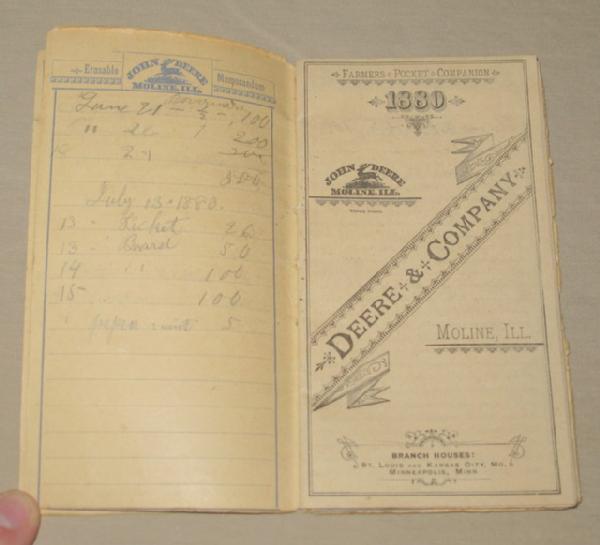 Erasable
JOHN DEERE
MOLINE, ILL.
Memorandum
June 21 - 1.00
" 22 1 200
21
July 13 - 1880.
13 - Ticket
13 - Board 50
14 " 100
15 100
5
FARMERS POCKET COMPANION
1880
JOHN DEERE
MOLINE, ILL.
DEERE & COMPANY
MOLINE, ILL.
BRANCH HOUSES:
ST. LOUIS AND KANSAS CITY, MO.
MINNEAPOLIS, MINN